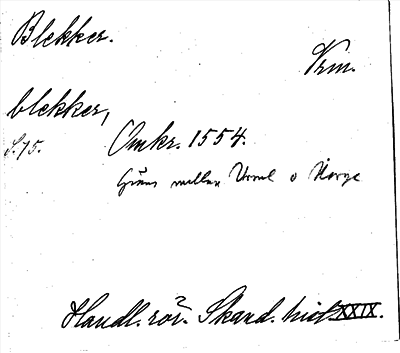 Blekker.
Vrm.
blekker,
S. 75.
Omkr. 1554.
Gräns mellan Verml o Norge
Handl. rör. Skand. hist. XXIX.